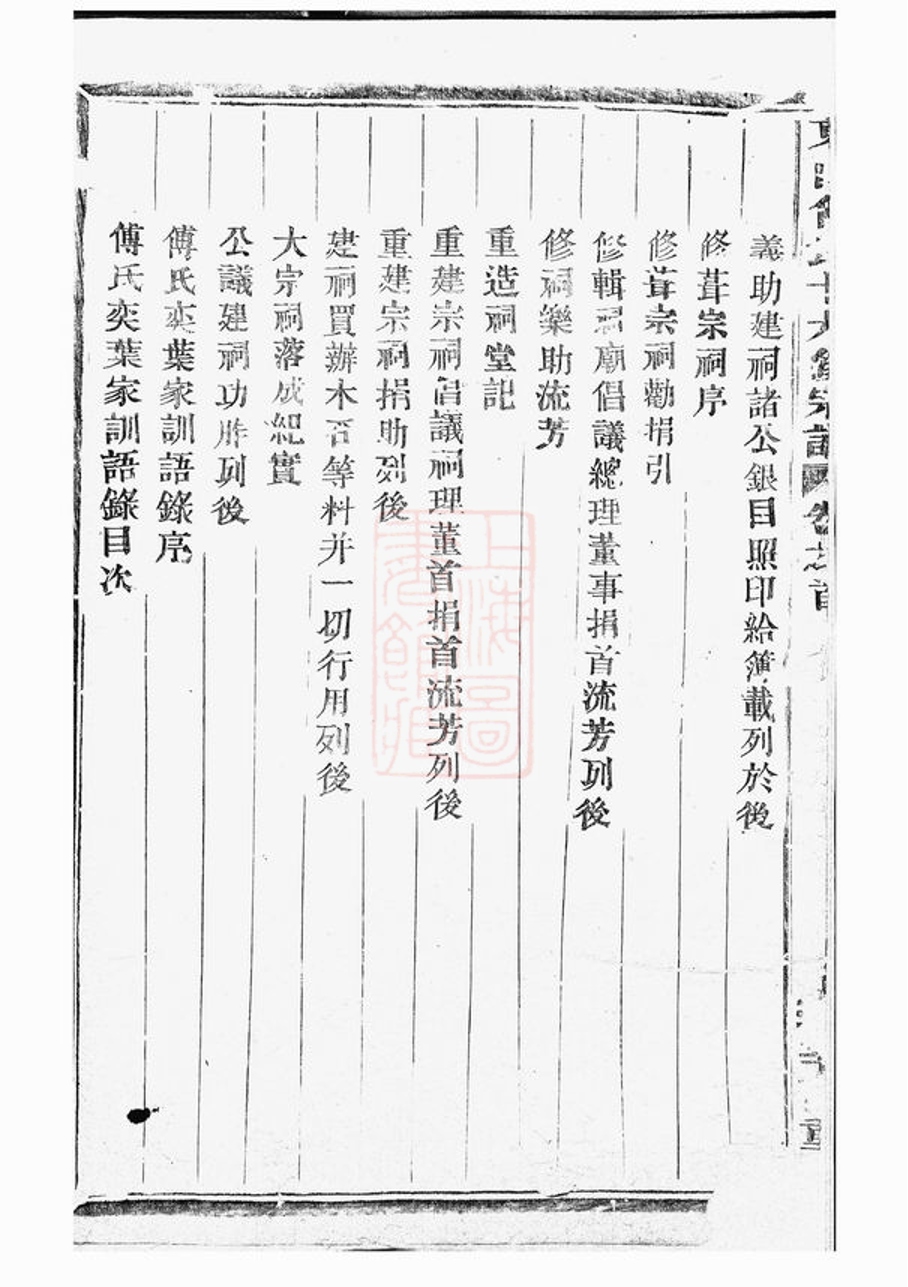 義助建祠諸公銀目照印給簿載列於後
修葺宗祠序
修葺宗祠勸捐引
修輯祠廟倡議總理董事捐首流芳列後
修祠樂助流芳
重造祠堂記
重建宗祠倡議祠理董首捐首流芳列後
重建宗祠捐助列後
建祠買辦木石等料并一切行用列後
大宗祠落成紀實
公議建祠功胙列後
傅氏奕葉家訓語錄序
傅氏奕葉家訓語錄目次
上海圖書館藏